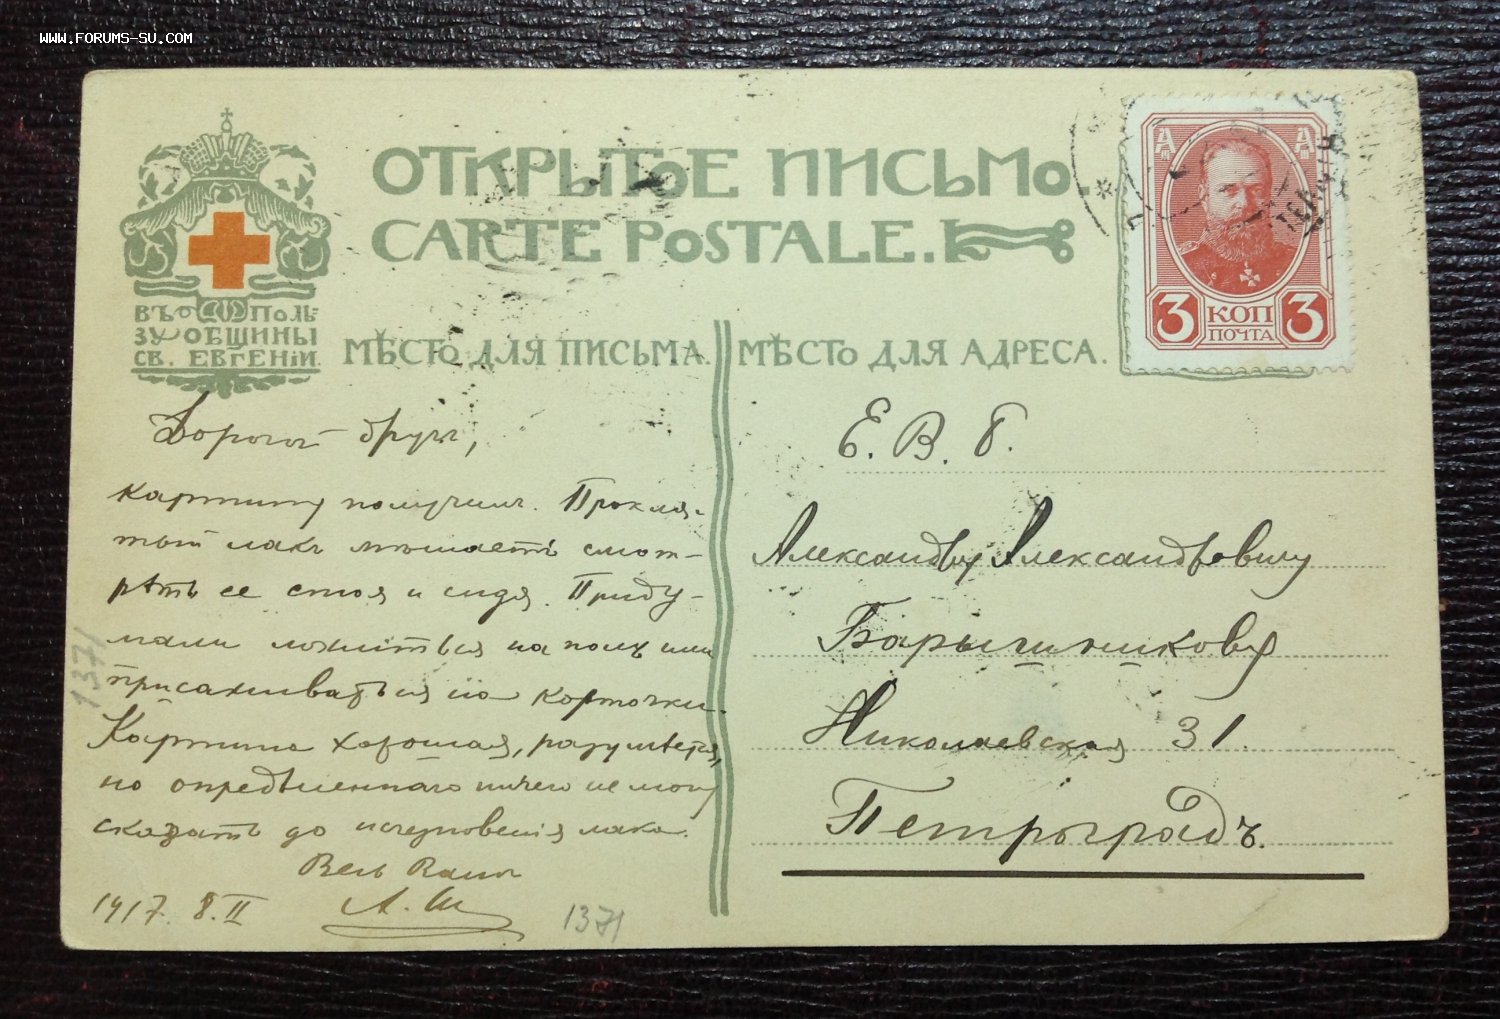 WWW.FORUMS-SU.COM
ОТКРЫТОЕ ПИСЬМО.
CARTE POSTALE.
ВЪ ПОЛЬ-
ЗУ ОБЩИНЫ
СВ. ЕВГЕНІИ.
МѢСТО ДЛЯ ПИСЬМА.
МѢСТО ДЛЯ АДРЕСА.
А А
3 КОП 3
ПОЧТА
Дорогой другъ,
картину получилъ. Прокля-
тый лакъ мѣшаетъ смот-
рѣть ее стоя и сидя. Приду-
мали ложиться на полъ или
присаживаться на корточки.
Картина хорошая, разумѣется,
но опредѣленнаго ничего не могу
сказать до исчезновенія лака.
Весь Вашъ
А. Ш
1917. 8.II
1371
1371
Е. В. Б.
Александру Александровичу
Барышникову
Николаевская 31.
Петроградъ.